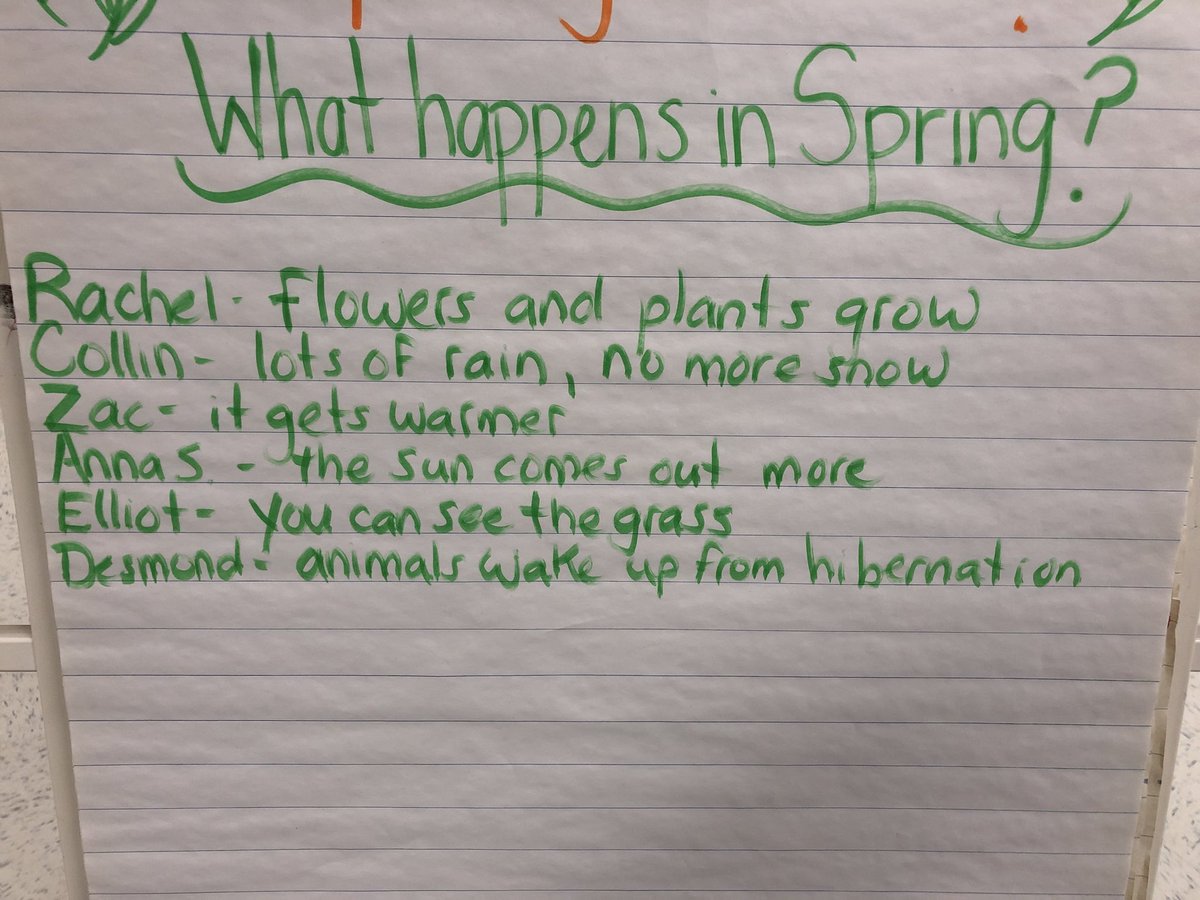 What happens in Spring?
Rachel- flowers and plants grow
Collin- lots of rain, no more snow
Zac- it gets warmer
Anna S. - the sun comes out more
Elliot- you can see the grass
Desmond- animals wake up from hibernation